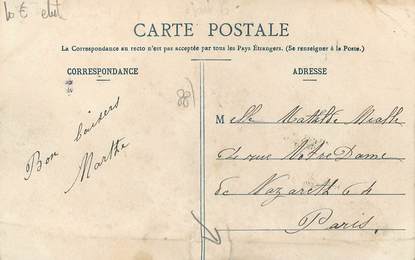 10 € chut
CARTE POSTALE
La Correspondance au recto n'est pas acceptée par tous les Pays Étrangers. (Se renseigner à la Poste.)
CORRESPONDANCE
ADRESSE
Bon baisers
Marthe
(88)
Melle Mathilde
de rue Notre Dame
de Nazareth 64
Paris.